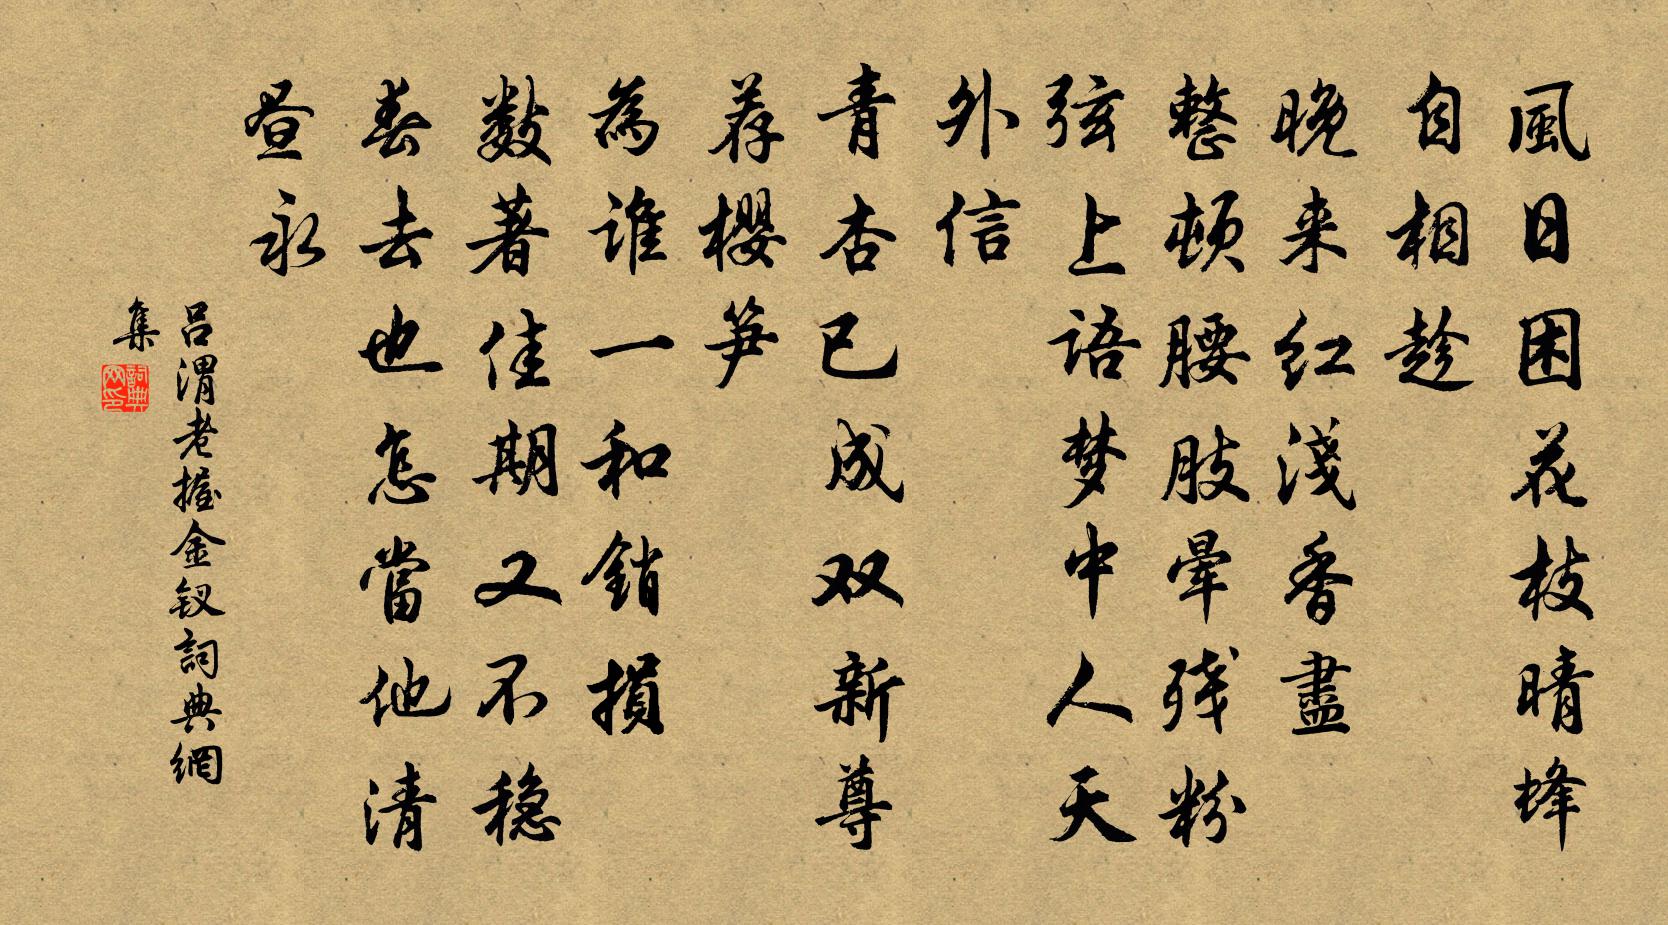 風日困花枝晴蜂
自相趁
晚来红淺香盡
整顿腰肢暈残粉
弦上语梦中人天
外信
青杏已成双新尊
荐櫻笋
為谁一和銷損
数著佳期又不稳
春去也怎當他清
昼永
吕渭老握金钗詞典網
集
詞典网印